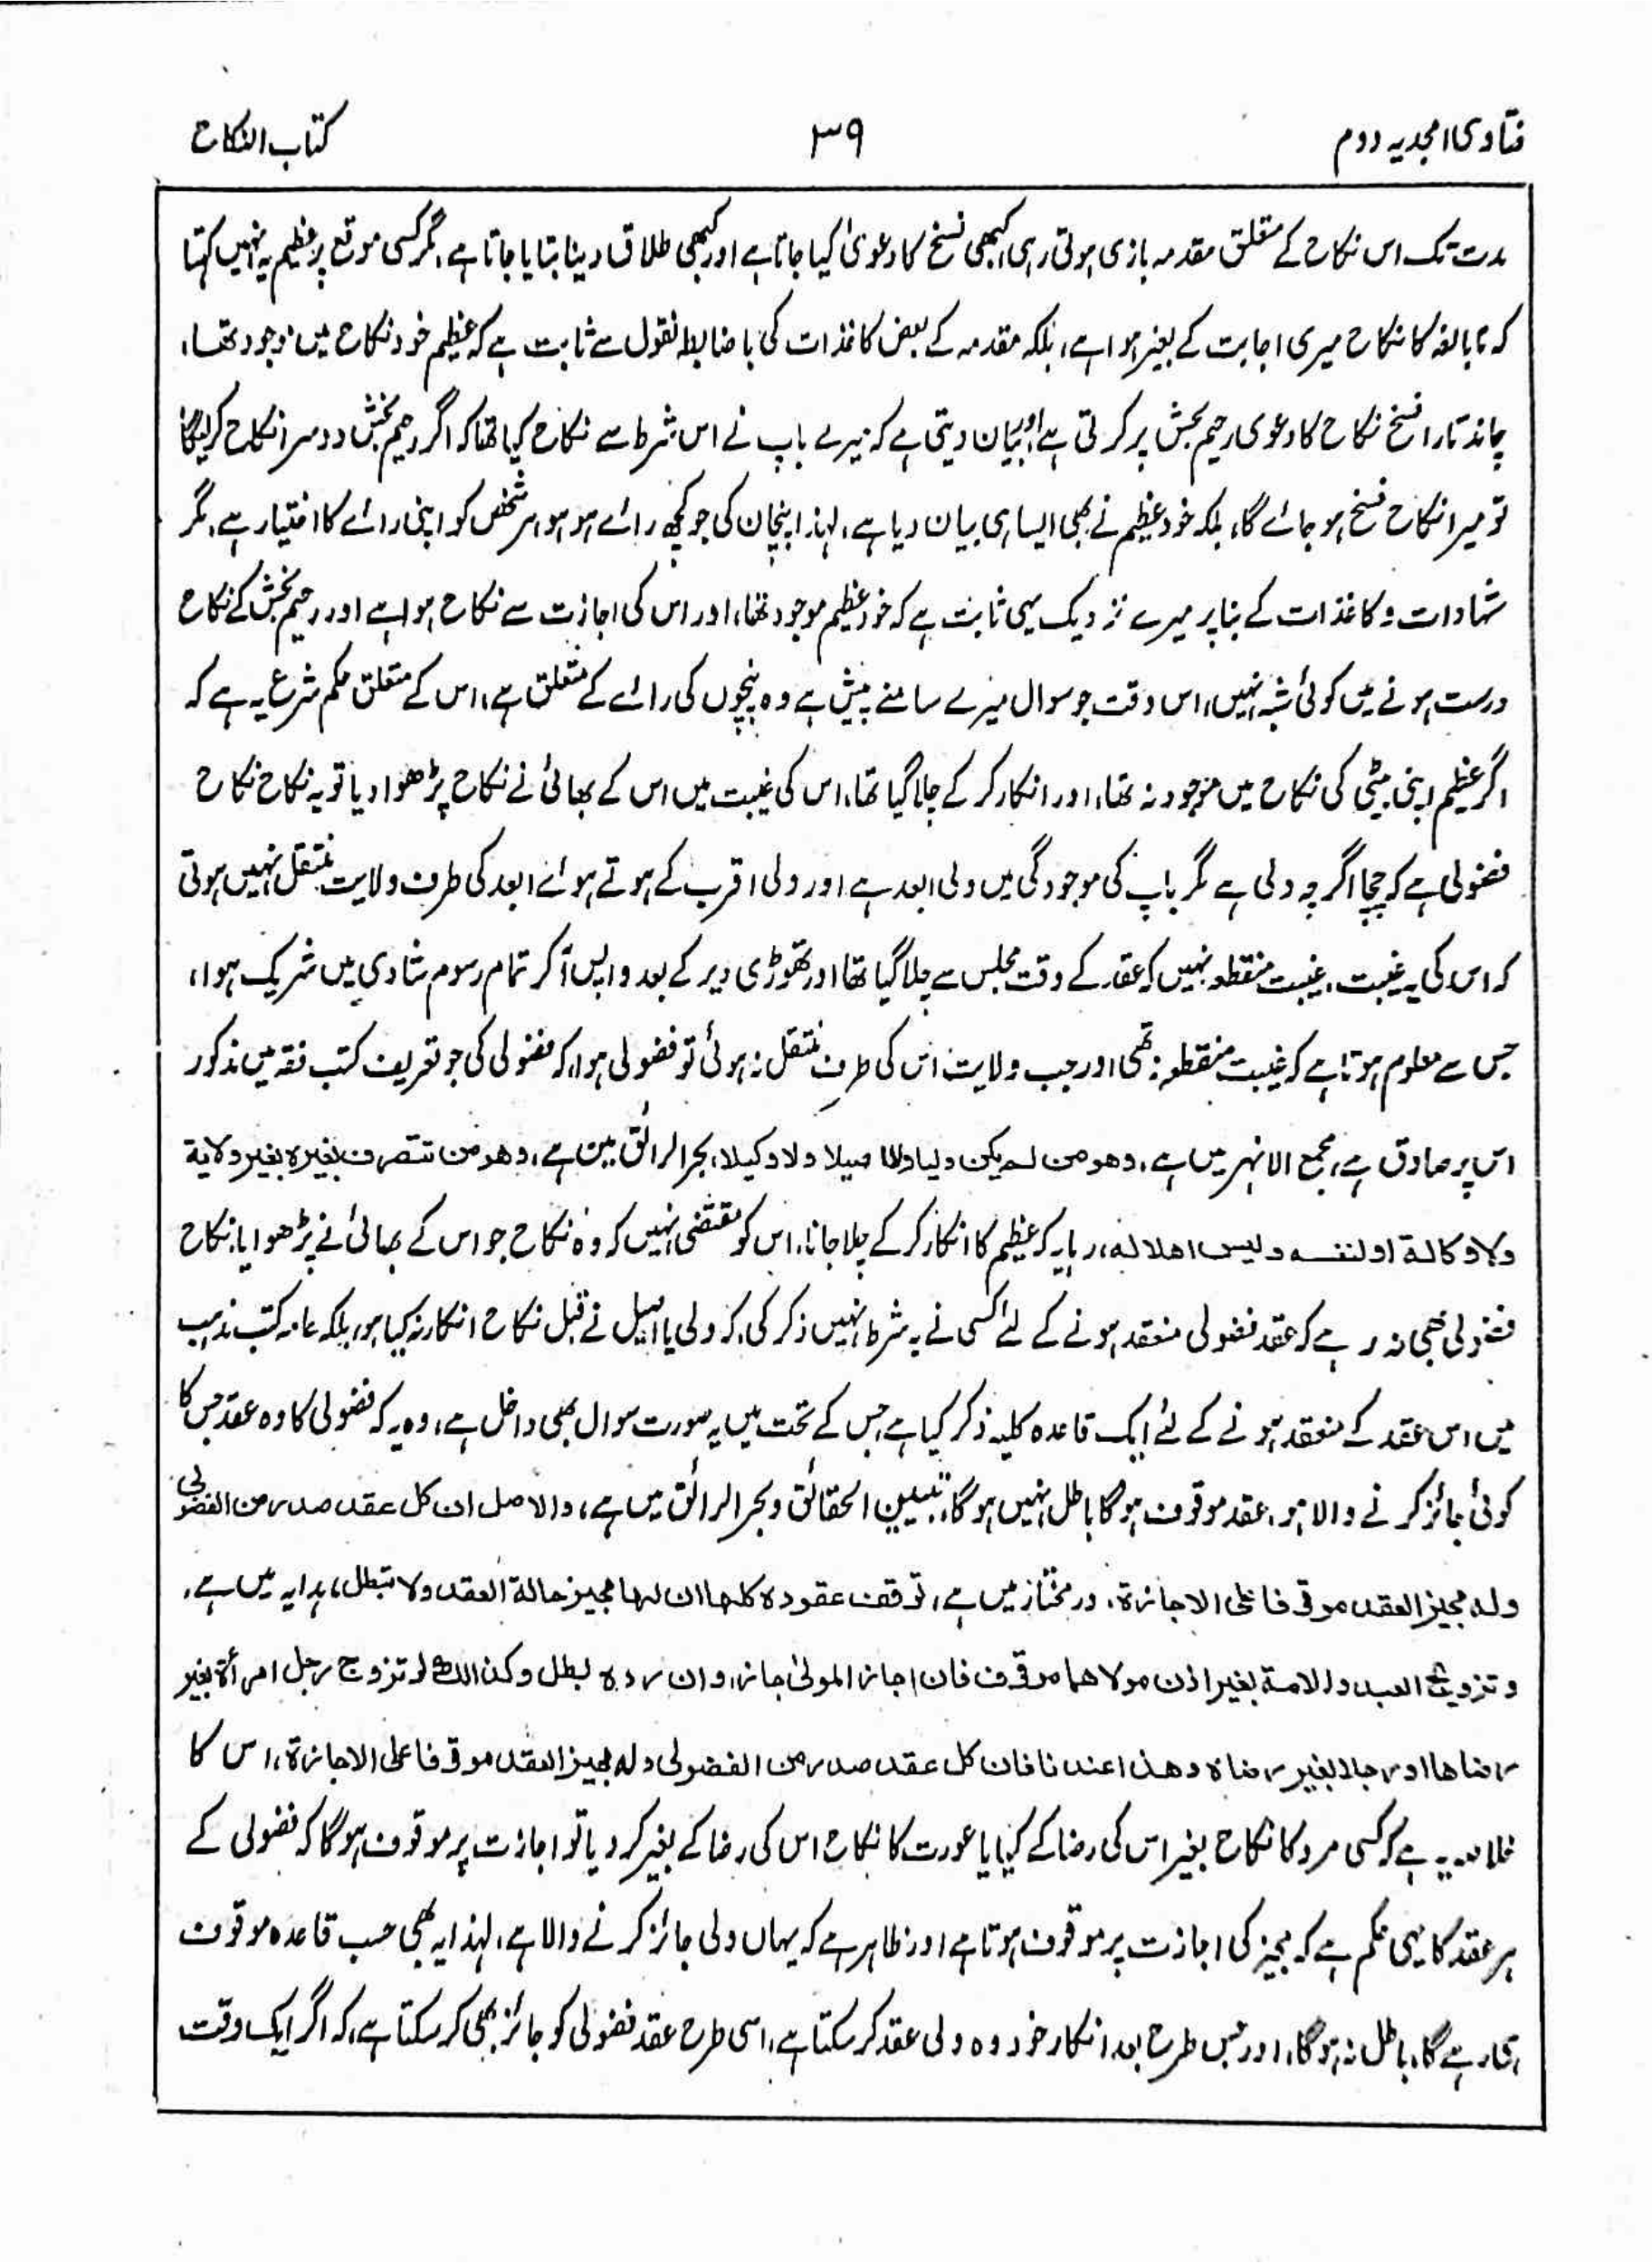 فتاوی امجدیہ دوم
۳۹
کتاب النکاح
مدت تک اس نکاح کے متعلق مقدمہ بازی ہوتی رہی، کبھی فسخ کا دعویٰ کیا جاتا ہے اور کبھی طلاق دینا بتایا جاتا ہے، مگر کسی موقع پر عظیم یہ نہیں کہتا
کہ نابالغہ کا نکاح میری اجابت کے بغیر ہوا ہے، بلکہ مقدمہ کے بعض کاغذات کی باضابطہ نقول سے ثابت ہے کہ عظیم خود نکاح میں موجود تھا،
چاند تارا فسخ نکاح کا دعوی رحیم بخش پر کرتی ہے اور بیان دیتی ہے کہ میرے باپ نے اس شرط سے نکاح کیا تھا کہ اگر رحیم بخش دوسرا نکاح کرلیگا
تو میرا نکاح فسخ ہو جائے گا، بلکہ خود عظیم نے بھی ایسا ہی بیان دیا ہے، لہذا پنچان کی جو کچھ رائے ہو ہو، ہر شخص کو اپنی رائے کا اختیار ہے، مگر
شہادات و کاغذات کے بنا پر میرے نزدیک یہی ثابت ہے کہ خود عظیم موجود تھا، اور اس کی اجازت سے نکاح ہوا ہے اور رحیم بخش کے نکاح
درست ہونے میں کوئی شبہ نہیں، اس وقت جو سوال میرے سامنے پیش ہے وہ پنچوں کی رائے کے متعلق ہے، اس کے متعلق حکم شرع یہ ہے کہ
اگر عظیم اپنی بیٹی کی نکاح میں موجود نہ تھا، اور انکار کر کے چلا گیا تھا، اس کی غیبت میں اس کے بھائی نے نکاح پڑھوا دیا تو یہ نکاح نکاح
فضولی ہے کہ چچا اگرچہ ولی ہے مگر باپ کی موجودگی میں ولی ابعد ہے اور ولی اقرب کے ہوتے ہوئے ابعد کی طرف ولایت منتقل نہیں ہوتی
کہ اس کی یہ غیبت، غیبت منقطعہ نہیں کہ عقد کے وقت مجلس سے چلا گیا تھا اور تھوڑی دیر کے بعد واپس آکر تمام رسوم شادی میں شریک ہوا،
جس سے معلوم ہوتا ہے کہ غیبت منقطعہ نہ تھی اور جب ولایت اس کی طرف منتقل نہ ہوئی تو فضولی ہوا، کہ فضولی کی جو تعریف کتب فقہ میں مذکور
اس پر صادق ہے، مجمع الانہر میں ہے، وھو من لم یکن ولیا ولا اصیلا ولا وکیلا، بحر الرائق میں ہے، وھو من تتصرف بغیرہ بغیر ولایة
ولا وکالة او لنفسه ولیس اھلا له، رہا یہ کہ عظیم کا انکار کر کے چلا جانا، اس کو مقتضی نہیں کہ وہ نکاح جو اس کے بھائی نے پڑھوایا، نکاح
فضولی بھی نہ رہے کہ عقد فضولی منعقد ہونے کے لئے کسی نے یہ شرط نہیں ذکر کی، کہ ولی یا اصیل نے قبل نکاح انکار نہ کیا ہو، بلکہ عامہ کتب مذہب
میں اس عقد کے منعقد ہونے کے لئے ایک قاعدہ کلیہ ذکر کیا ہے جس کے تحت میں یہ صورت سوال بھی داخل ہے، وہ یہ کہ فضولی کا وہ عقد جس کا
کوئی جائز کرنے والا ہو، عقد موقوف ہوگا باطل نہیں ہوگا، تبیین الحقائق و بحر الرائق میں ہے، والاصل ان کل عقد صدر من الفضولی
وله مجیز انعقد موقوفا علی الاجازة، درمختار میں ہے، توقف عقودہ کلھا ان لھا مجیز حالة العقد ولا تبطل، ہدایہ میں ہے،
وتزویج العبد والامة بغیر اذن مولاھما موقوف فان اجاز المولیٰ جاز، وان ردہ بطل وکذالك لو تزوج رجل امرأة بغیر
رضاھا او رجلا بغیر رضاہ وھذا عندنا فان کل عقد صدر من الفضولی وله مجیز انعقد موقوفا علی الاجازة، اس کا
خلاصہ یہ ہے کہ کسی مرد کا نکاح بغیر اس کی رضا کے کیا یا عورت کا نکاح اس کی رضا کے بغیر کر دیا تو اجازت پر موقوف ہوگا کہ فضولی کے
ہر عقد کا یہی حکم ہے کہ مجیز کی اجازت پر موقوف ہوتا ہے اور ظاہر ہے کہ یہاں ولی جائز کرنے والا ہے، لہذا یہ بھی حسب قاعدہ موقوف
ہی رہے گا، باطل نہ ہوگا، اور جس طرح بعد انکار خود وہ ولی عقد کر سکتا ہے، اسی طرح عقد فضولی کو جائز بھی کر سکتا ہے، کہ اگر ایک وقت